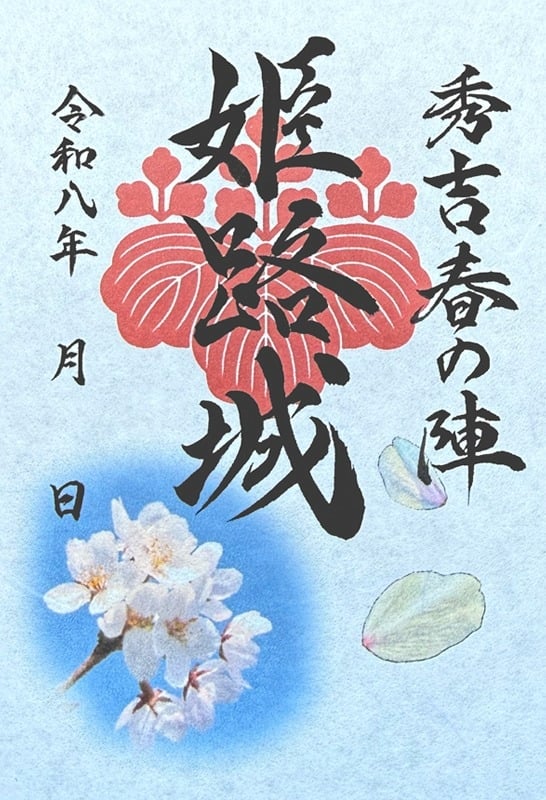 秀吉春の陣
姫路城
令和八年 月 日